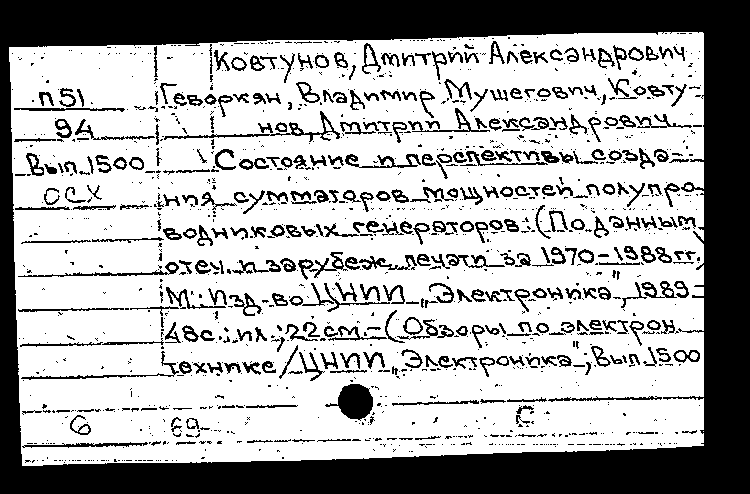 Ковтунов, Дмитрий Александрович
п51 Геворкян, Владимир Мушегович, Ковту-
94 нов, Дмитрий Александрович.
Вып.1500 Состояние и перспективы созда-
ОСХ ния сумматоров мощностей полупро-
водниковых генераторов: (По данным
отеч. и зарубеж. печати за 1970-1988гг.)
М.: Изд-во ЦНИИ „Электроника", 1989-
48с.: ил.; 22см.-(Обзоры по электрон.
технике/ЦНИИ „Электроника"; Вып.1500
6 69 С